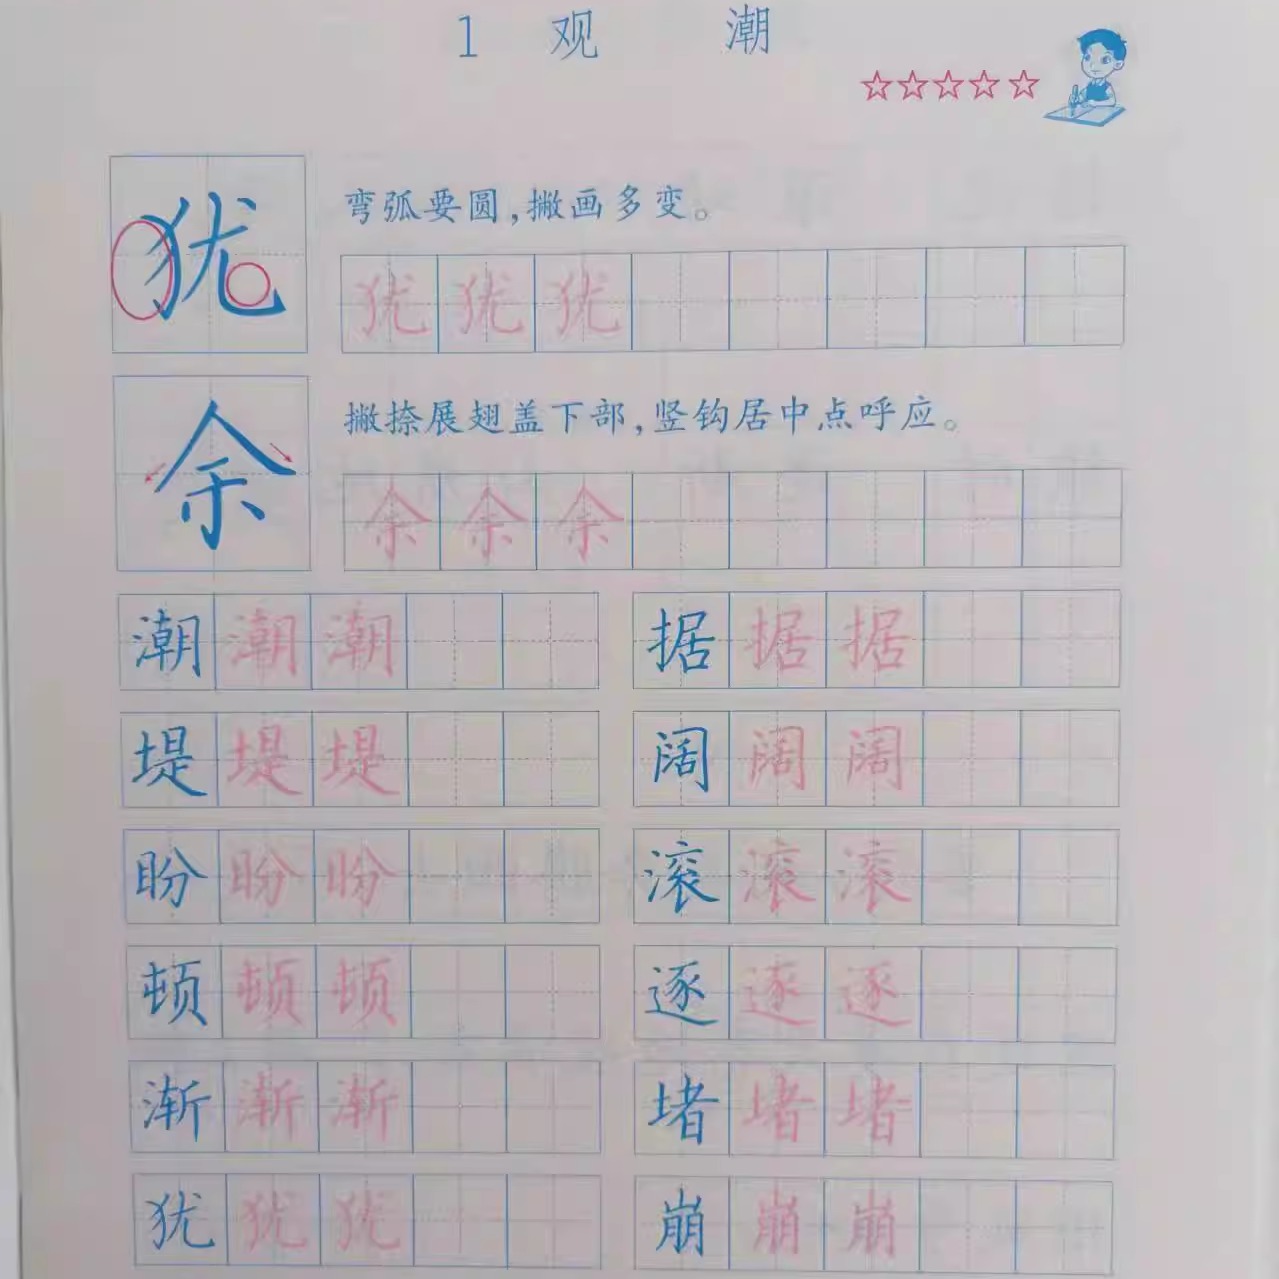 1 观 潮
犹 弯弧要圆,撇画多变。
犹 犹 犹
余 撇捺展翅盖下部,竖钩居中点呼应。
余 余 余
潮 潮 潮 据 据 据
堤 堤 堤 阔 阔 阔
盼 盼 盼 滚 滚 滚
顿 顿 顿 逐 逐 逐
渐 渐 渐 堵 堵 堵
犹 犹 犹 崩 崩 崩